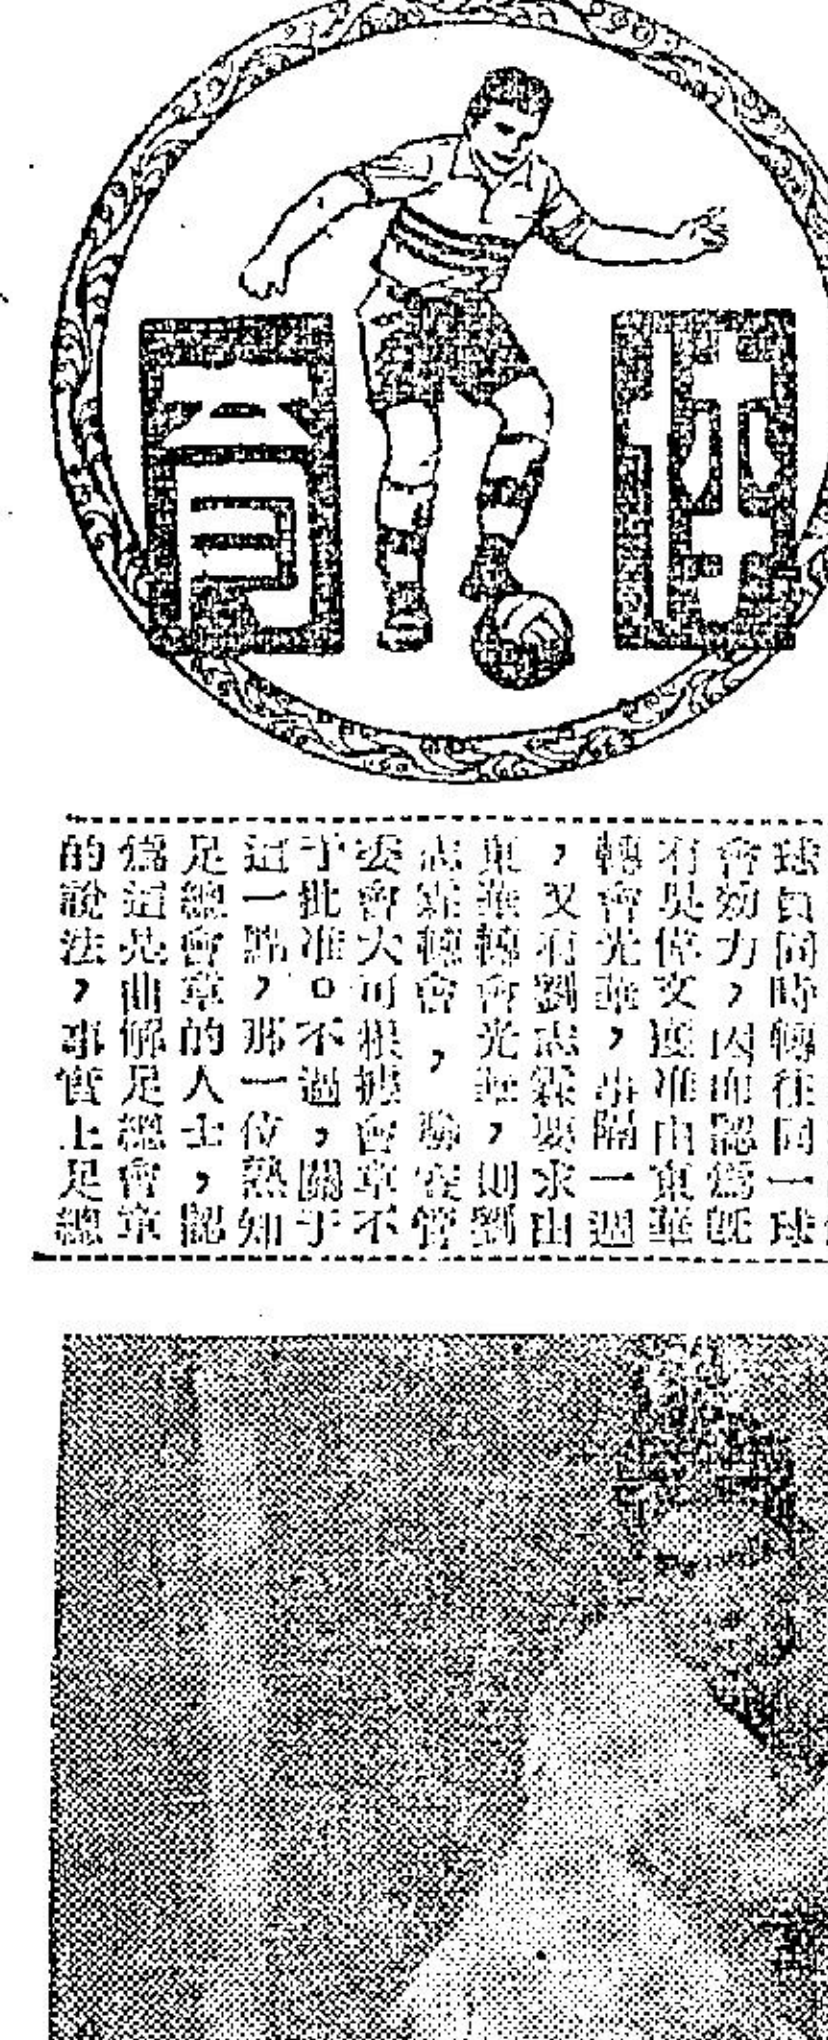 体育
球員同時轉往同一球
會効力，因而認爲旣
有吳偉文獲准由東華
轉會光華，事隔一週
，又有劉志霖要求由
東華轉會光華，則劉
志霖轉會，聯賽管
委會大可根據會章不
予批准。不過，關于
這一點，那一位熟知
足總會章的人士，認
爲這是曲解足總會章
的說法，事實上足總